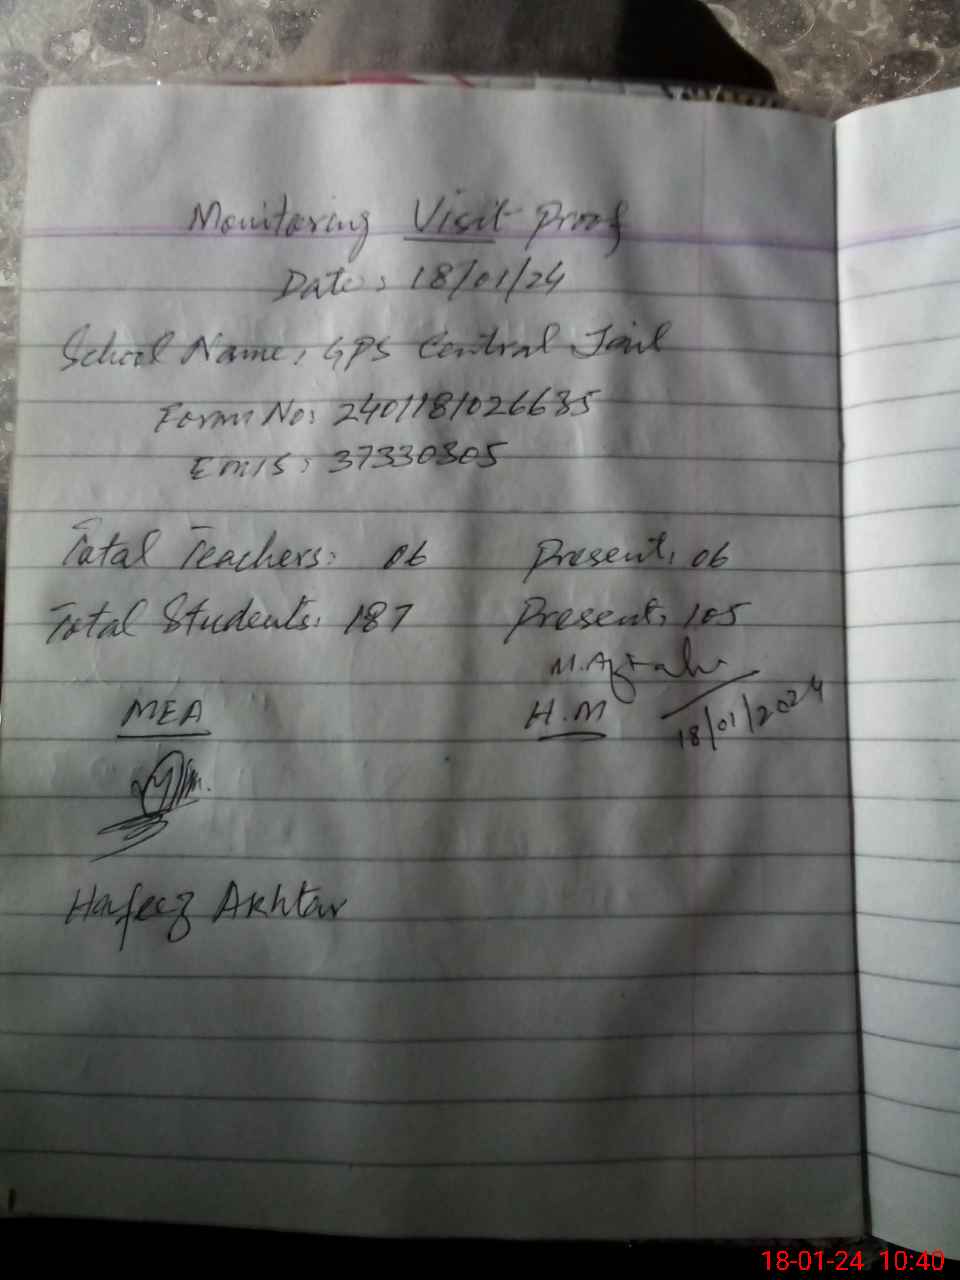 Monitoring Visit Proof
Date: 18/01/24
School Name: GPS Central Jail
Form No: 2401181026635
EMIS: 37330305
Total Teachers: 06 Present: 06
Total Students: 187 Present: 105
MEA
H.M 18/01/2024
Hafeez Akhtar
18-01-24 10:40